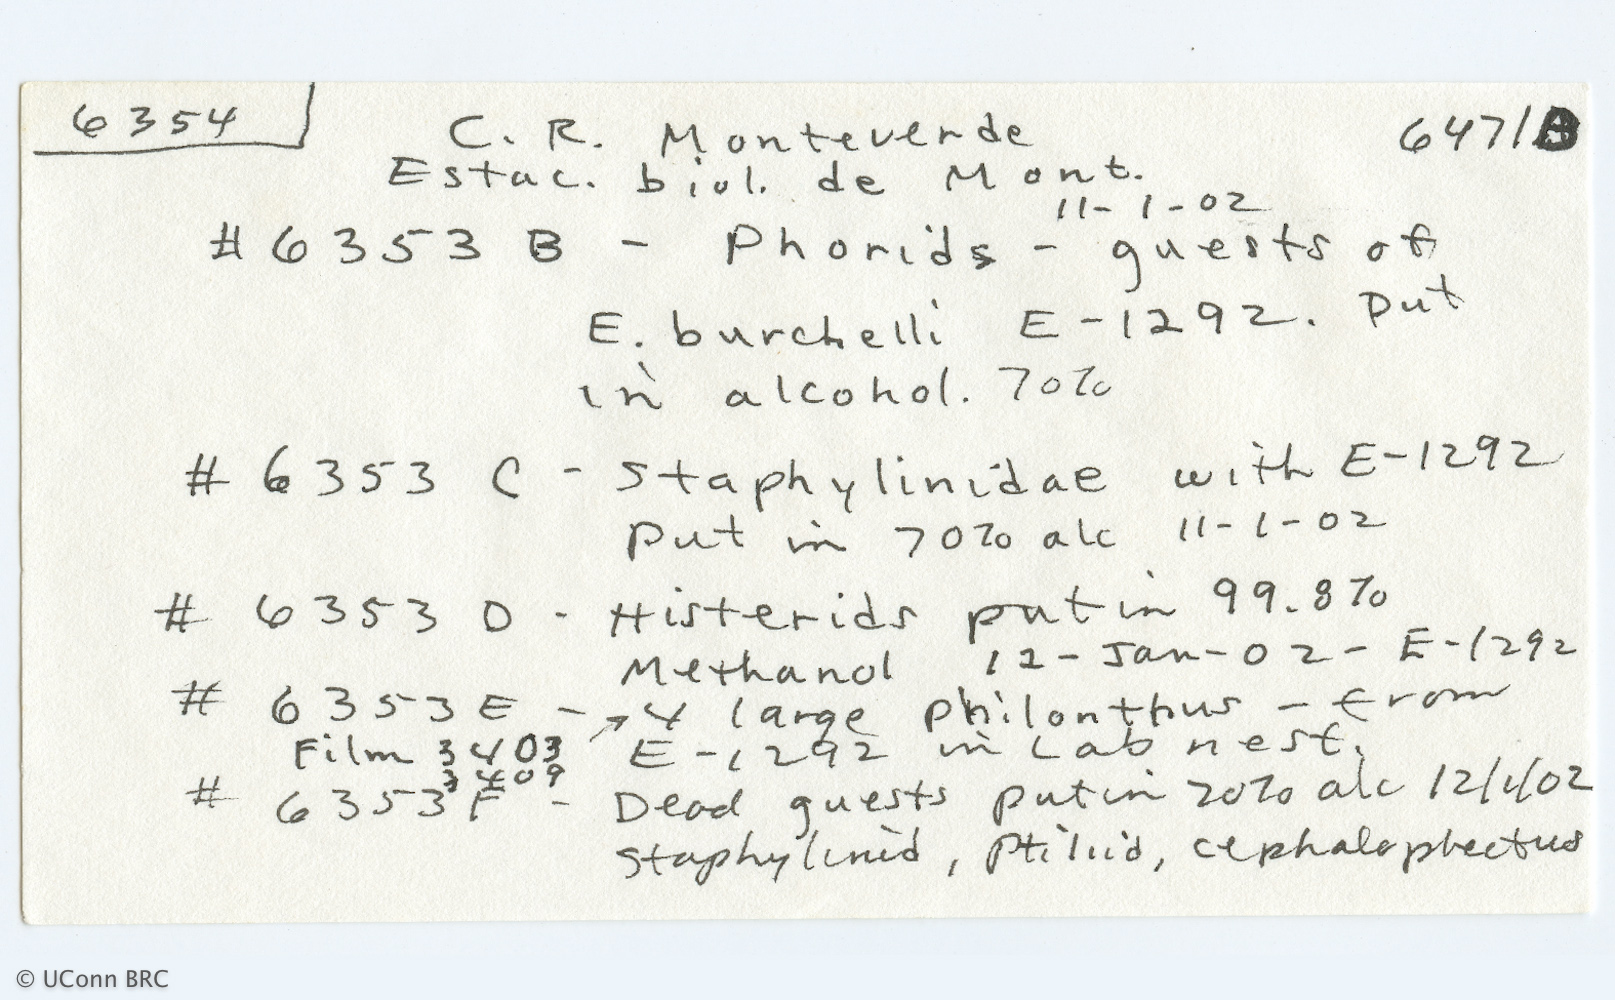 6354
C. R. Monteverde
6471B
Estac. biol. de Mont.
11-1-02
# 6353 B - Phorids - guests of
E. burchelli E-1292. Put
in alcohol. 70%
# 6353 C - Staphylinidae with E-1292
Put in 70% alc 11-1-02
# 6353 D - Histerids put in 99.8%
Methanol 12-Jan-02 - E-1292
# 6353 E - → 4 large Philonthus - from
Film 3403 E-1292 in Lab nest.
3409
# 6353 F - Dead guests put in 70% alc 12/1/02
Staphylinid, Ptiliid, cephaloplectus
© UConn BRC